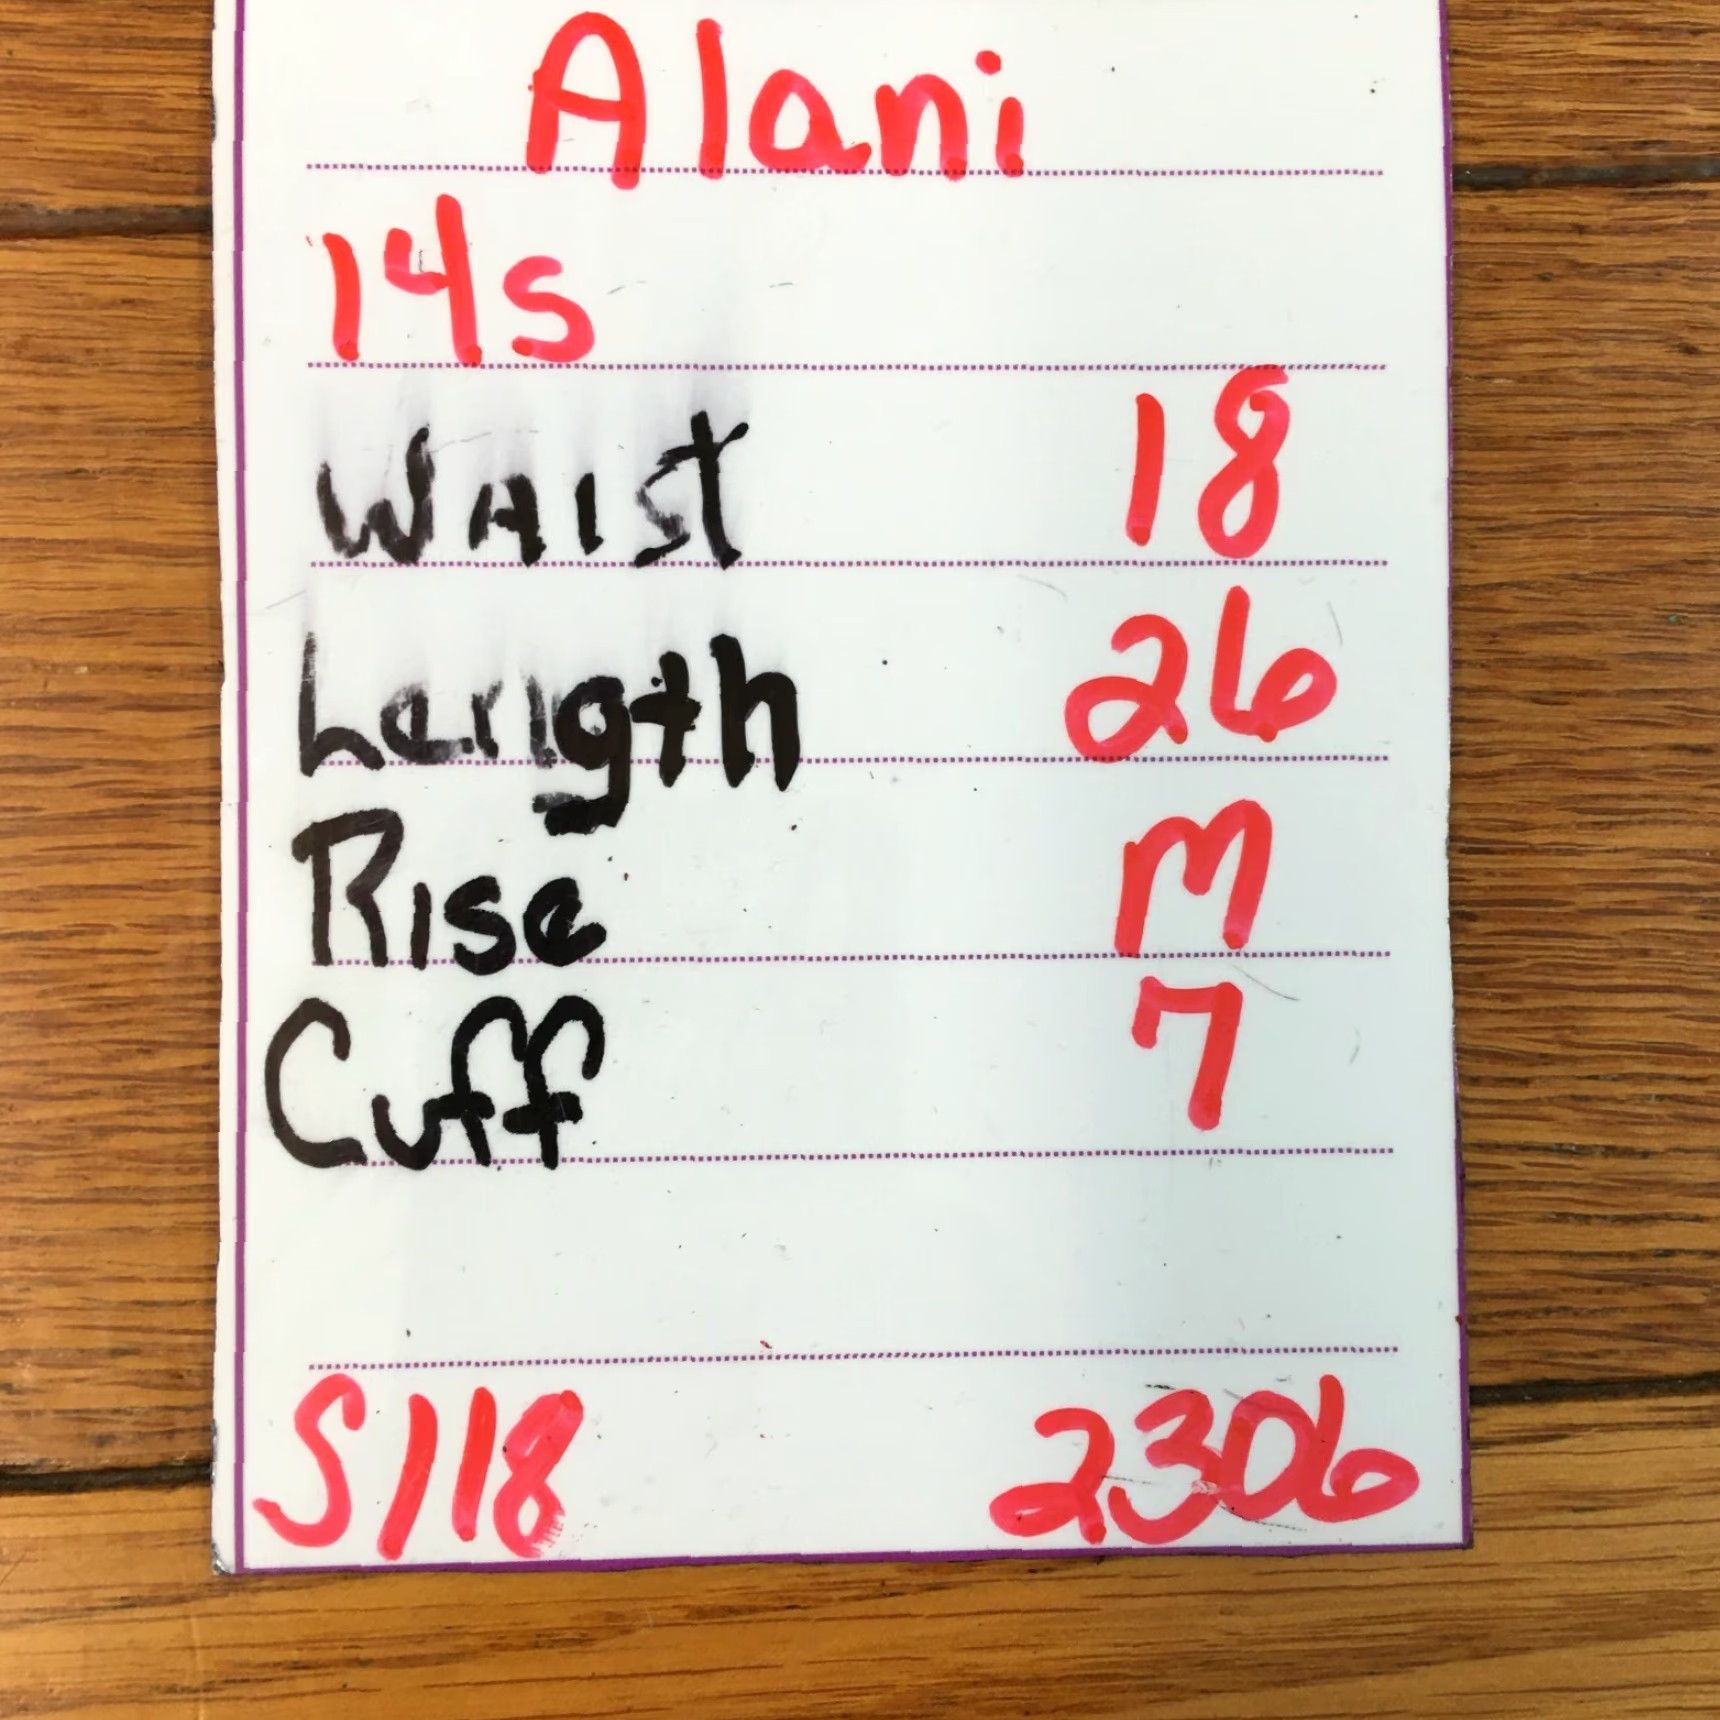 Alani
14s
Waist 18
Length 26
Rise M
Cuff 7
S118 2306